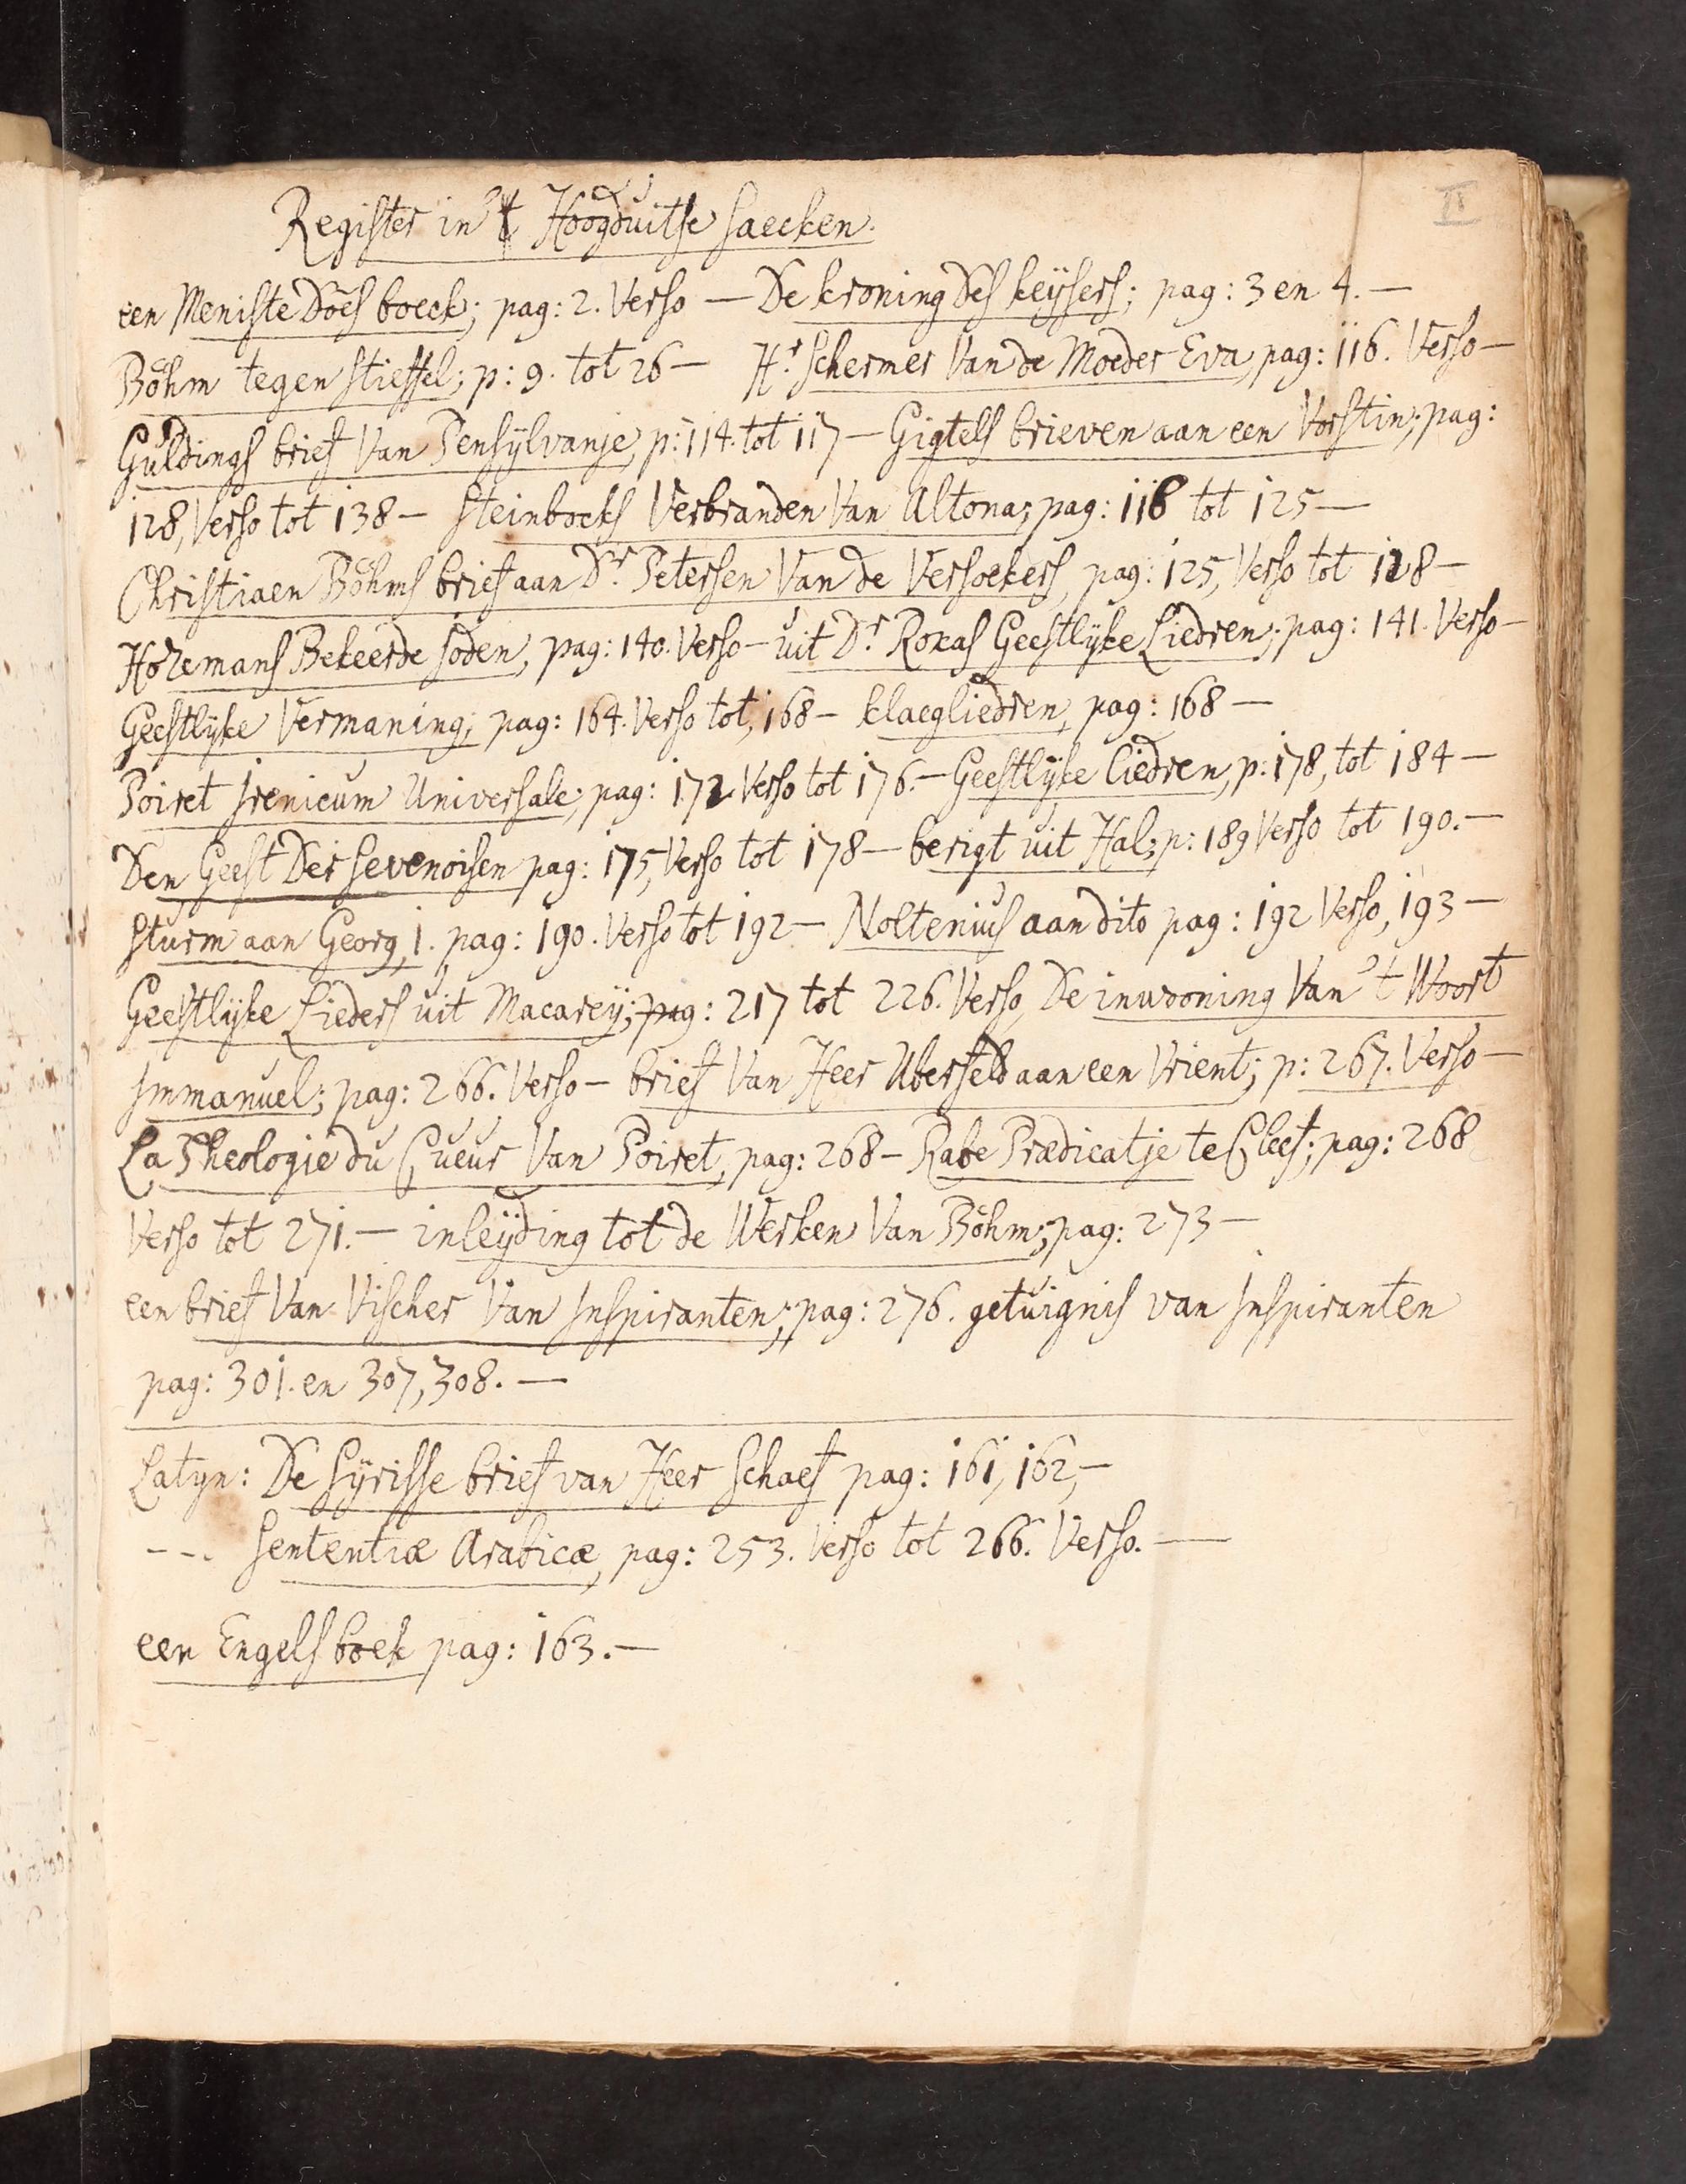 II
Register in 't Hoogduitse saecken.
een Meniste Does boeck; pag: 2. Verso — De kroning Des keysers; pag: 3 en 4. —
Böhm tegen stieffel; p: 9. tot 26 — Hr. Schermer Van de Moeder Eva, pag: 116. Verso —
Guldings brief Van Pensylvanje, p: 114. tot 117 — Gigtels brieven aan een Vorstin; pag:
128, Verso tot 138 — Steinbocks Verbranden Van Altona; pag: 118 tot 125 —
Christiaen Böhms brief aan Dr. Petersen Van de Versoekers, pag: 125, Verso tot 128 —
Horemans Bekeerde Joden, pag: 140. Verso — uit Dr. Roxas Geestlyke Liedren; pag: 141. Verso —
Geestlyke Vermaning, pag: 164. Verso tot, 168 — klaegliedren, pag: 168 —
Poiret Irenicum Universale; pag: 172 Verso tot 176. — Geestlyke liedren, p: 178, tot 184 —
Den Geest Der Sevenoisen pag: 175, Verso tot 178 — berigt uit Hal; p: 189 Verso tot 190. —
Sturm aan Georg, 1. pag: 190. Verso tot 192 — Noltenius aan dito pag: 192 Verso, 193 —
Geestlyke Lieders uit Macarey; pag: 217 tot 226. Verso, De inwooning Van 't Woort
Immanuel; pag: 266. Verso — brief Van Heer Uberfeld aan een Vrient; p: 267. Verso —
La Theologie du Cueur Van Poiret, pag: 268 — Rabe Prædicatje te Cleef; pag: 268
Verso tot 271. — inleyding tot de Werken Van Böhm; pag: 273 —
een brief Van Vischer Van Inspiranten; pag: 276. getuignis van Inspiranten
pag: 301. en 307, 308. —
Latyn: De Syrisse brief van Heer Schaef pag: 161, 162, —
--- Sententiæ Arabicæ, pag: 253. Verso tot 266. Verso. —
een Engels boek pag: 163. —